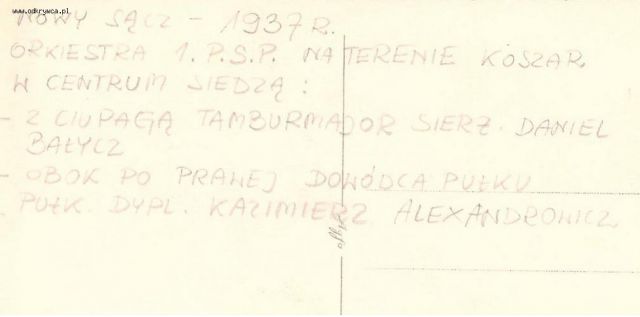 www.odkrywca.pl
NOWY SĄCZ - 1937 R.
ORKIESTRA 1. P.S.P. NA TERENIE KOSZAR
W CENTRUM SIEDZĄ :
- Z CIUPAGĄ TAMBURMAJOR SIERŻ. DANIEL
BAŁYCZ
- OBOK PO PRAWEJ DOWÓDCA PUŁKU
PUŁK. DYPL. KAZIMIERZ ALEXANDROWICZ